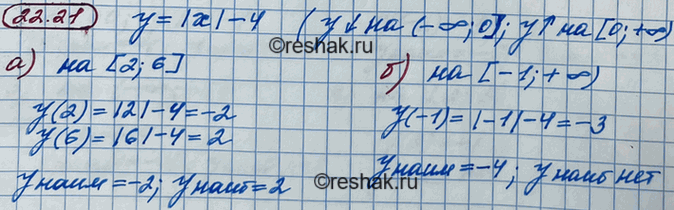 22.21 y = |x| - 4 (y↓ на (-∞; 0]; y↑ на [0; +∞)
а) на [2; 6]
y(2) = |2| - 4 = -2
y(6) = |6| - 4 = 2
y наим = -2; y наиб = 2
б) на [-1; +∞)
y(-1) = |-1| - 4 = -3
y наим = -4; y наиб нет
©reshak.ru
©reshak.ru